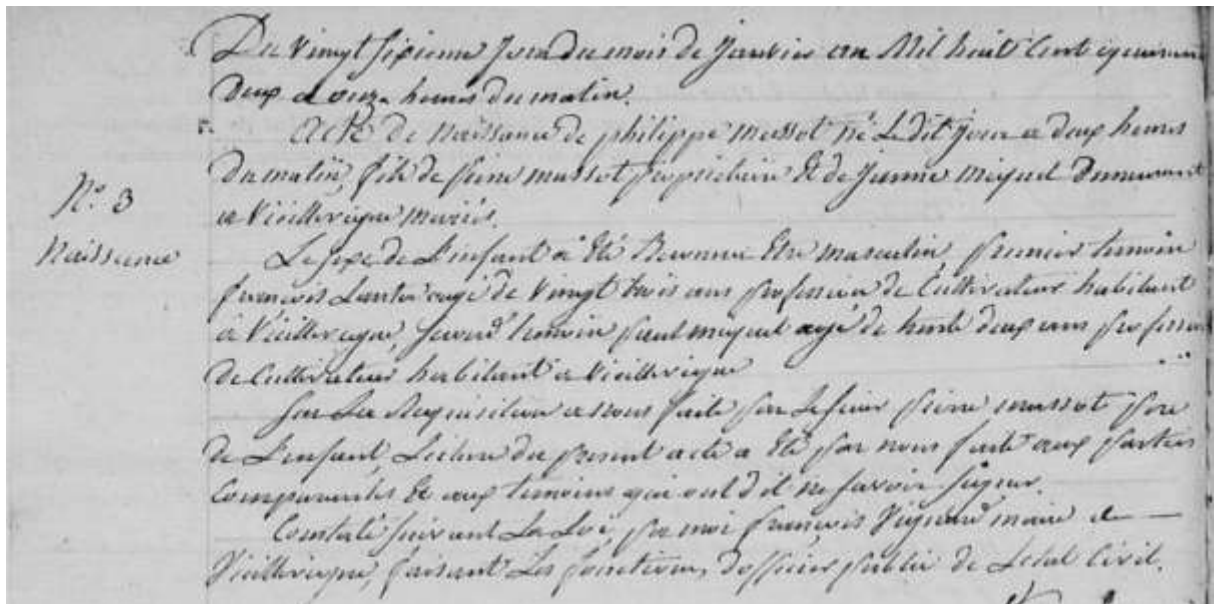 Du vingt sixieme jour du mois de janvier an mil huit cent quarante
deux a onze heures du matin.
acte de naissance de philippe massot né Ledit jour a deux heures
du matin, fils de pierre massot propriétaire et de Jeanne miquel demeurant
a Vieillevigne mariés.
N.o 3
Naissance
Le sexe de L'enfant a été reconnu etre masculin premier temoin
françois agé de vingt trois ans profession de Cultivateur habitant
a Vieillevigne, second temoin paul miquel agé de trente deux ans profession
de Cultivateur habitant a Vieillevigne
Sur La requisition a nous faite par Le sieur pierre massot père
de L'enfant, Lecture du present acte a été par nous faite aux parties
Comparantes et aux temoins qui ont dit ne savoir signer.
Constaté suivant La Loi, par moi françois maire de
Vieillevigne, faisant Les fonctions d'officier public de Letat Civil.